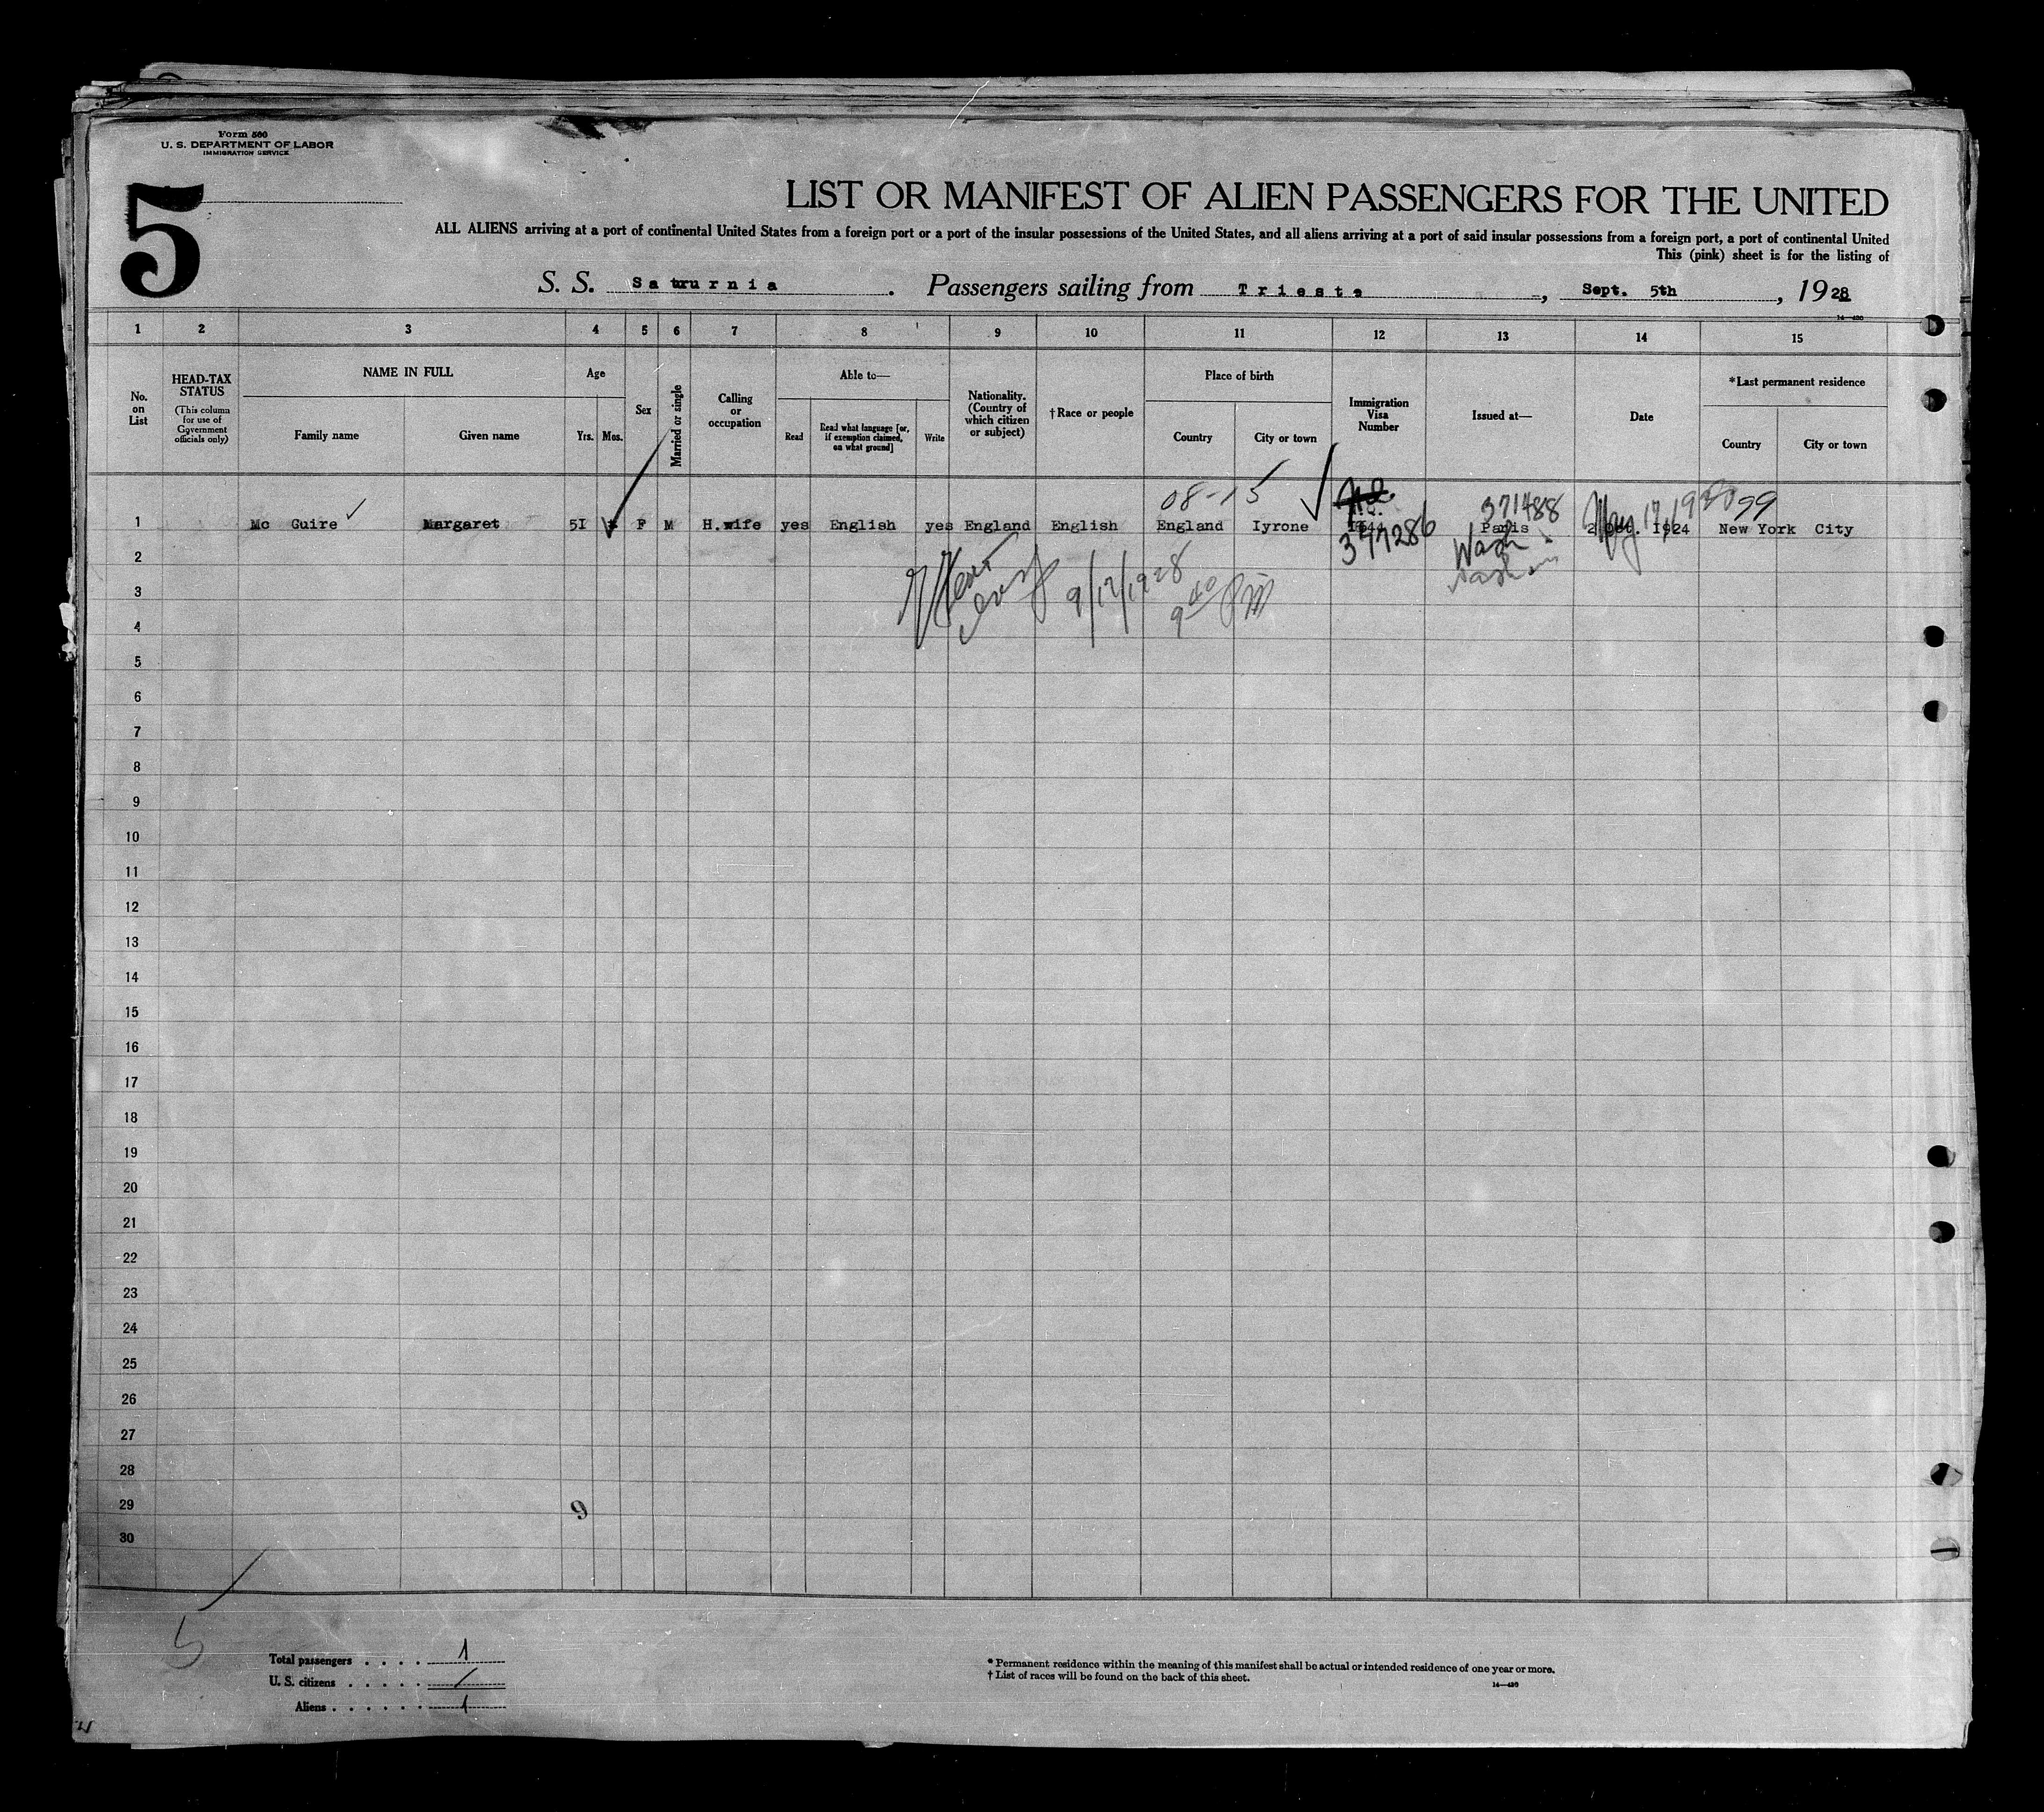 Form 500
U. S. DEPARTMENT OF LABOR
IMMIGRATION SERVICE
5
LIST OR MANIFEST OF ALIEN PASSENGERS FOR THE UNITED
ALL ALIENS arriving at a port of continental United States from a foreign port or a port of the insular possessions of the United States, and all aliens arriving at a port of said insular possessions from a foreign port, a port of continental United
This (pink) sheet is for the listing of
S. S. Saturnia. Passengers sailing from Trieste, Sept. 5th, 1928
14—430
1 2 3 4 5 6 7 8 9 10 11 12 13 14 15
No. on List
HEAD-TAX STATUS
(This column for use of Government officials only)
NAME IN FULL
Family name
Given name
Age
Yrs. Mos.
Sex
Married or single
Calling or occupation
Able to—
Read
Read what language [or, if exemption claimed, on what ground]
Write
Nationality. (Country of which citizen or subject)
†Race or people
Place of birth
Country
City or town
Immigration Visa Number
Issued at—
Date
*Last permanent residence
Country
City or town
08-15 371488 99
1 Mc Guire Margaret 5I F M H.wife yes English yes England English England Iyrone Paris 2 Oct. 1924 New York City
377286 Wash May 17/1928
2
9/17/1928
3
9 40
4
5
6
7
8
9
10
11
12
13
14
15
16
17
18
19
20
21
22
23
24
25
26
27
28
29 9
30
5
Total passengers . . . . 1
U. S. citizens . . . . . /
Aliens . . . . . . 1
* Permanent residence within the meaning of this manifest shall be actual or intended residence of one year or more.
† List of races will be found on the back of this sheet.
14—430